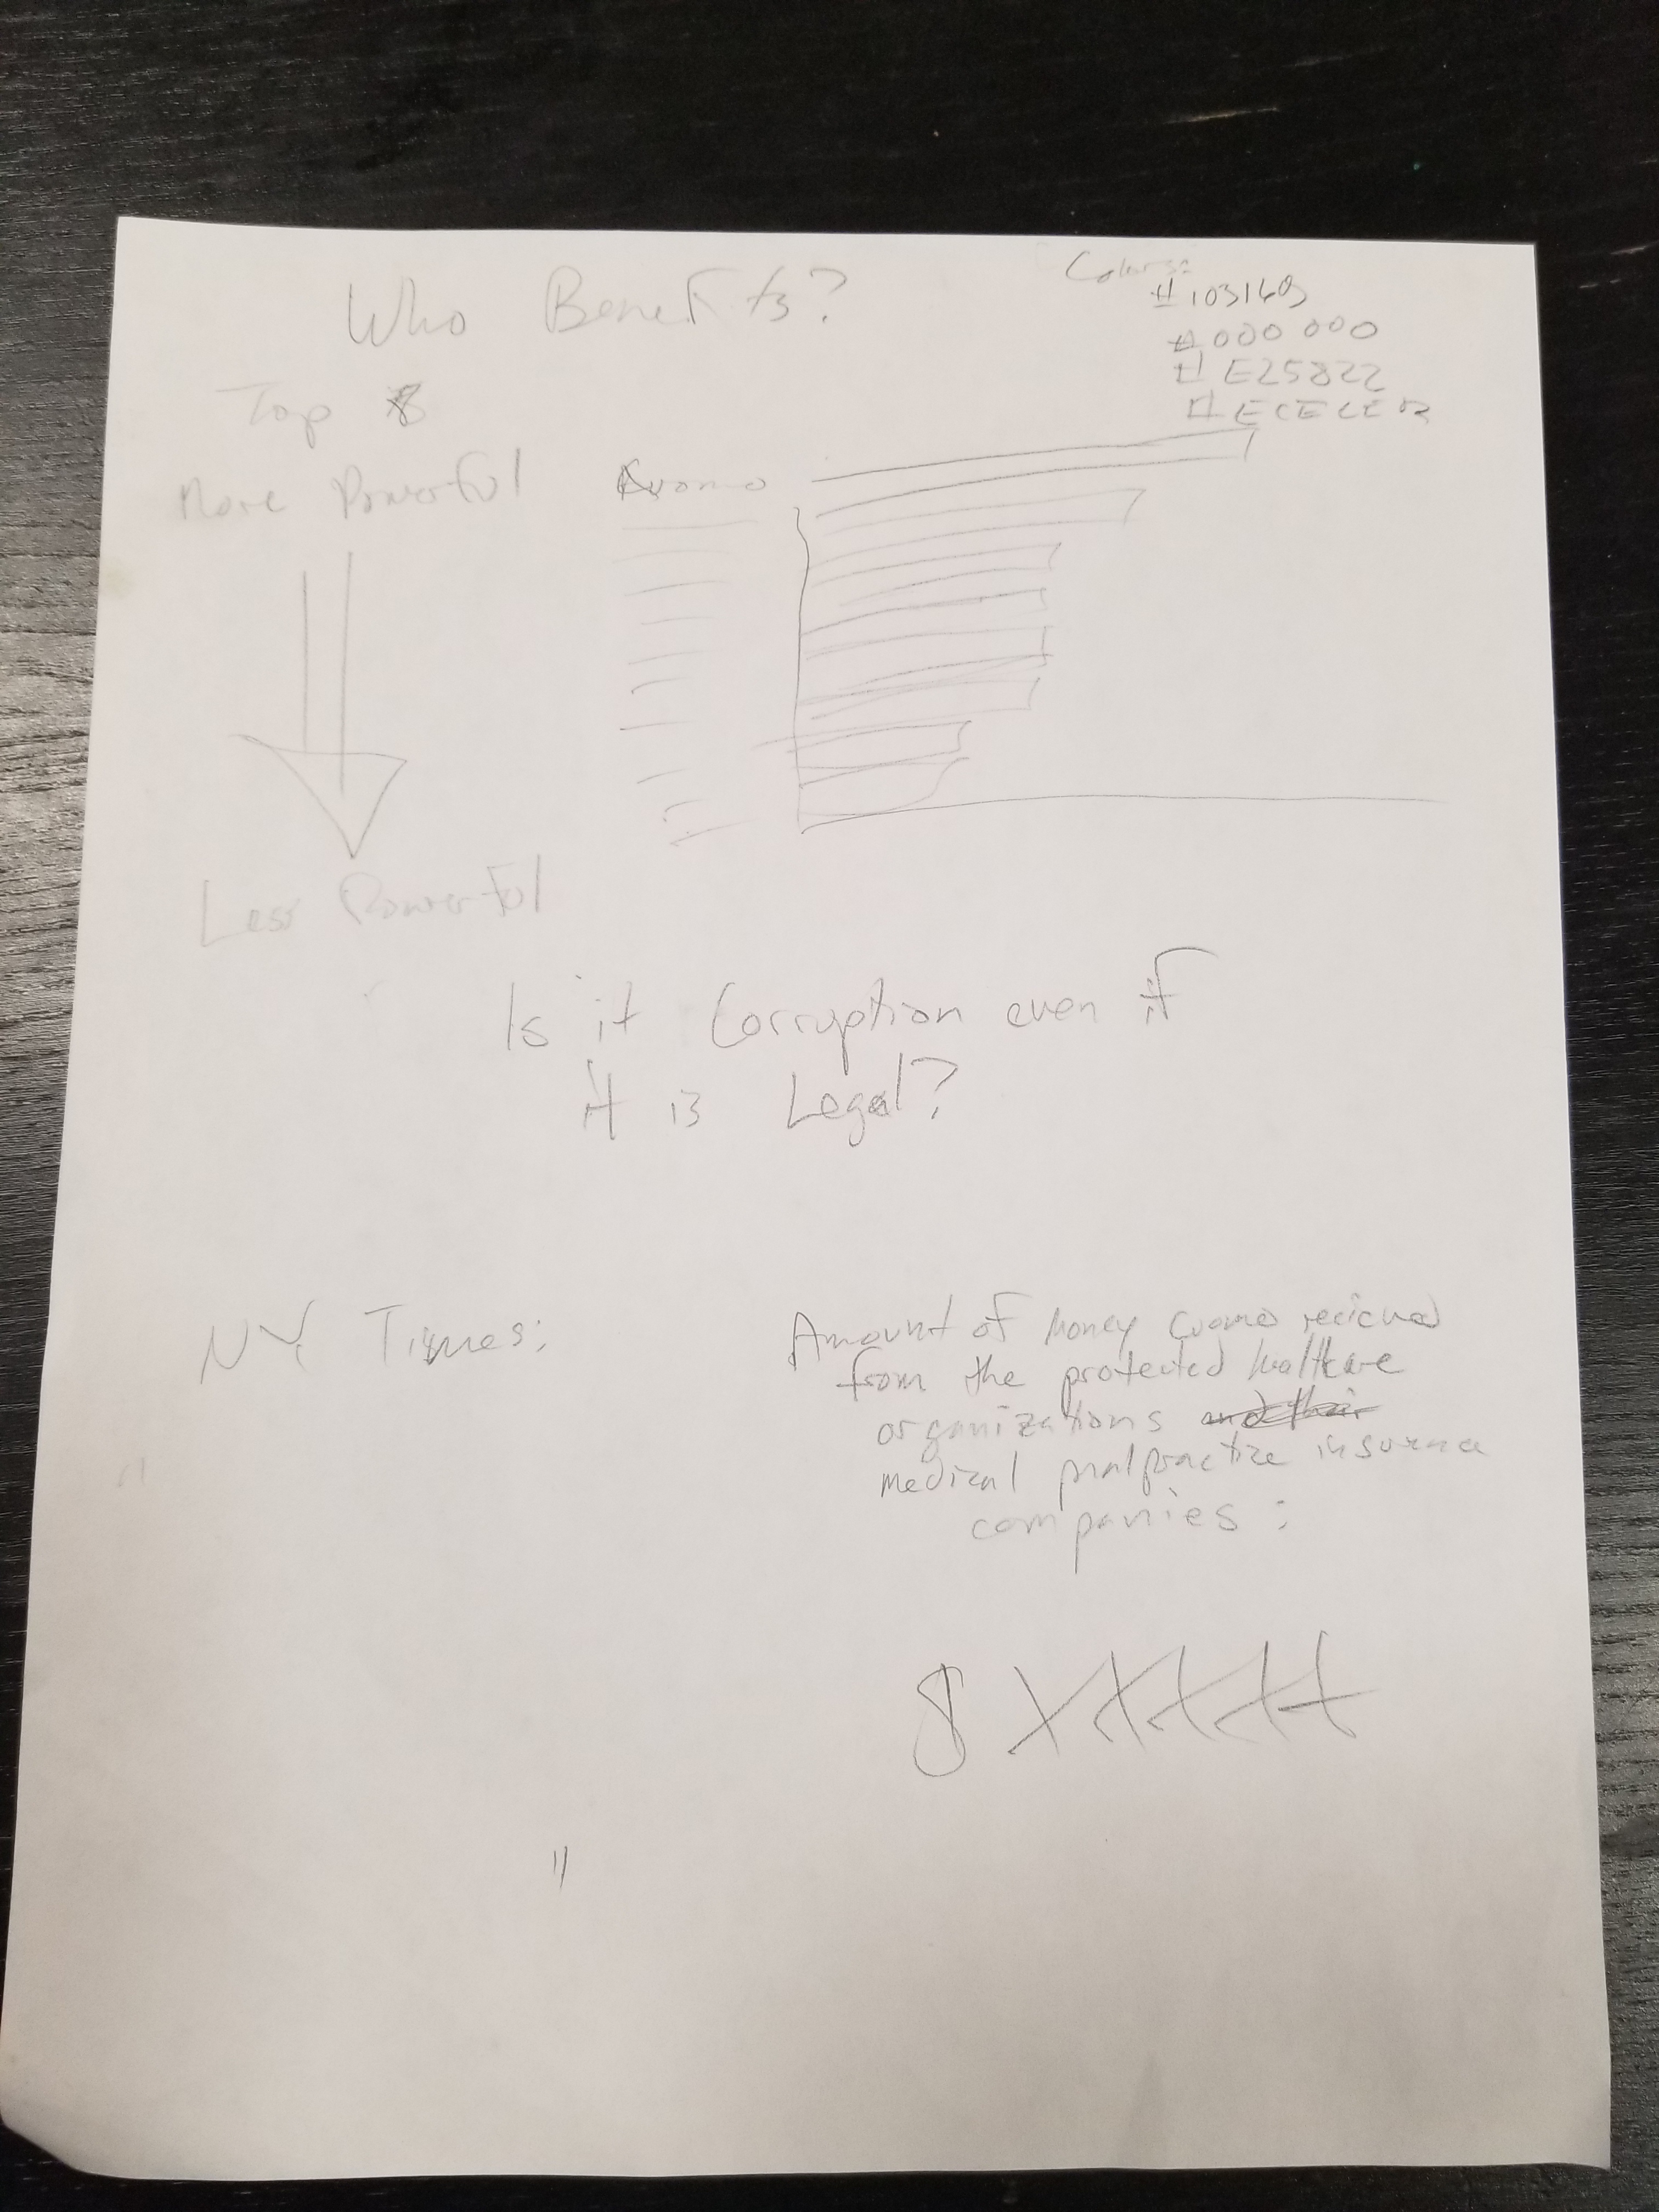 Who Benefits?
Colors:
#103169
#000000
#E25822
Top 8
More Powerful
Cuomo
Less Powerful
Is it Corruption even if
it is Legal?
NY Times:
Amount of Money Cuomo recieved
from the protected healthcare
organizations and their
medical malpractice insurance
companies: